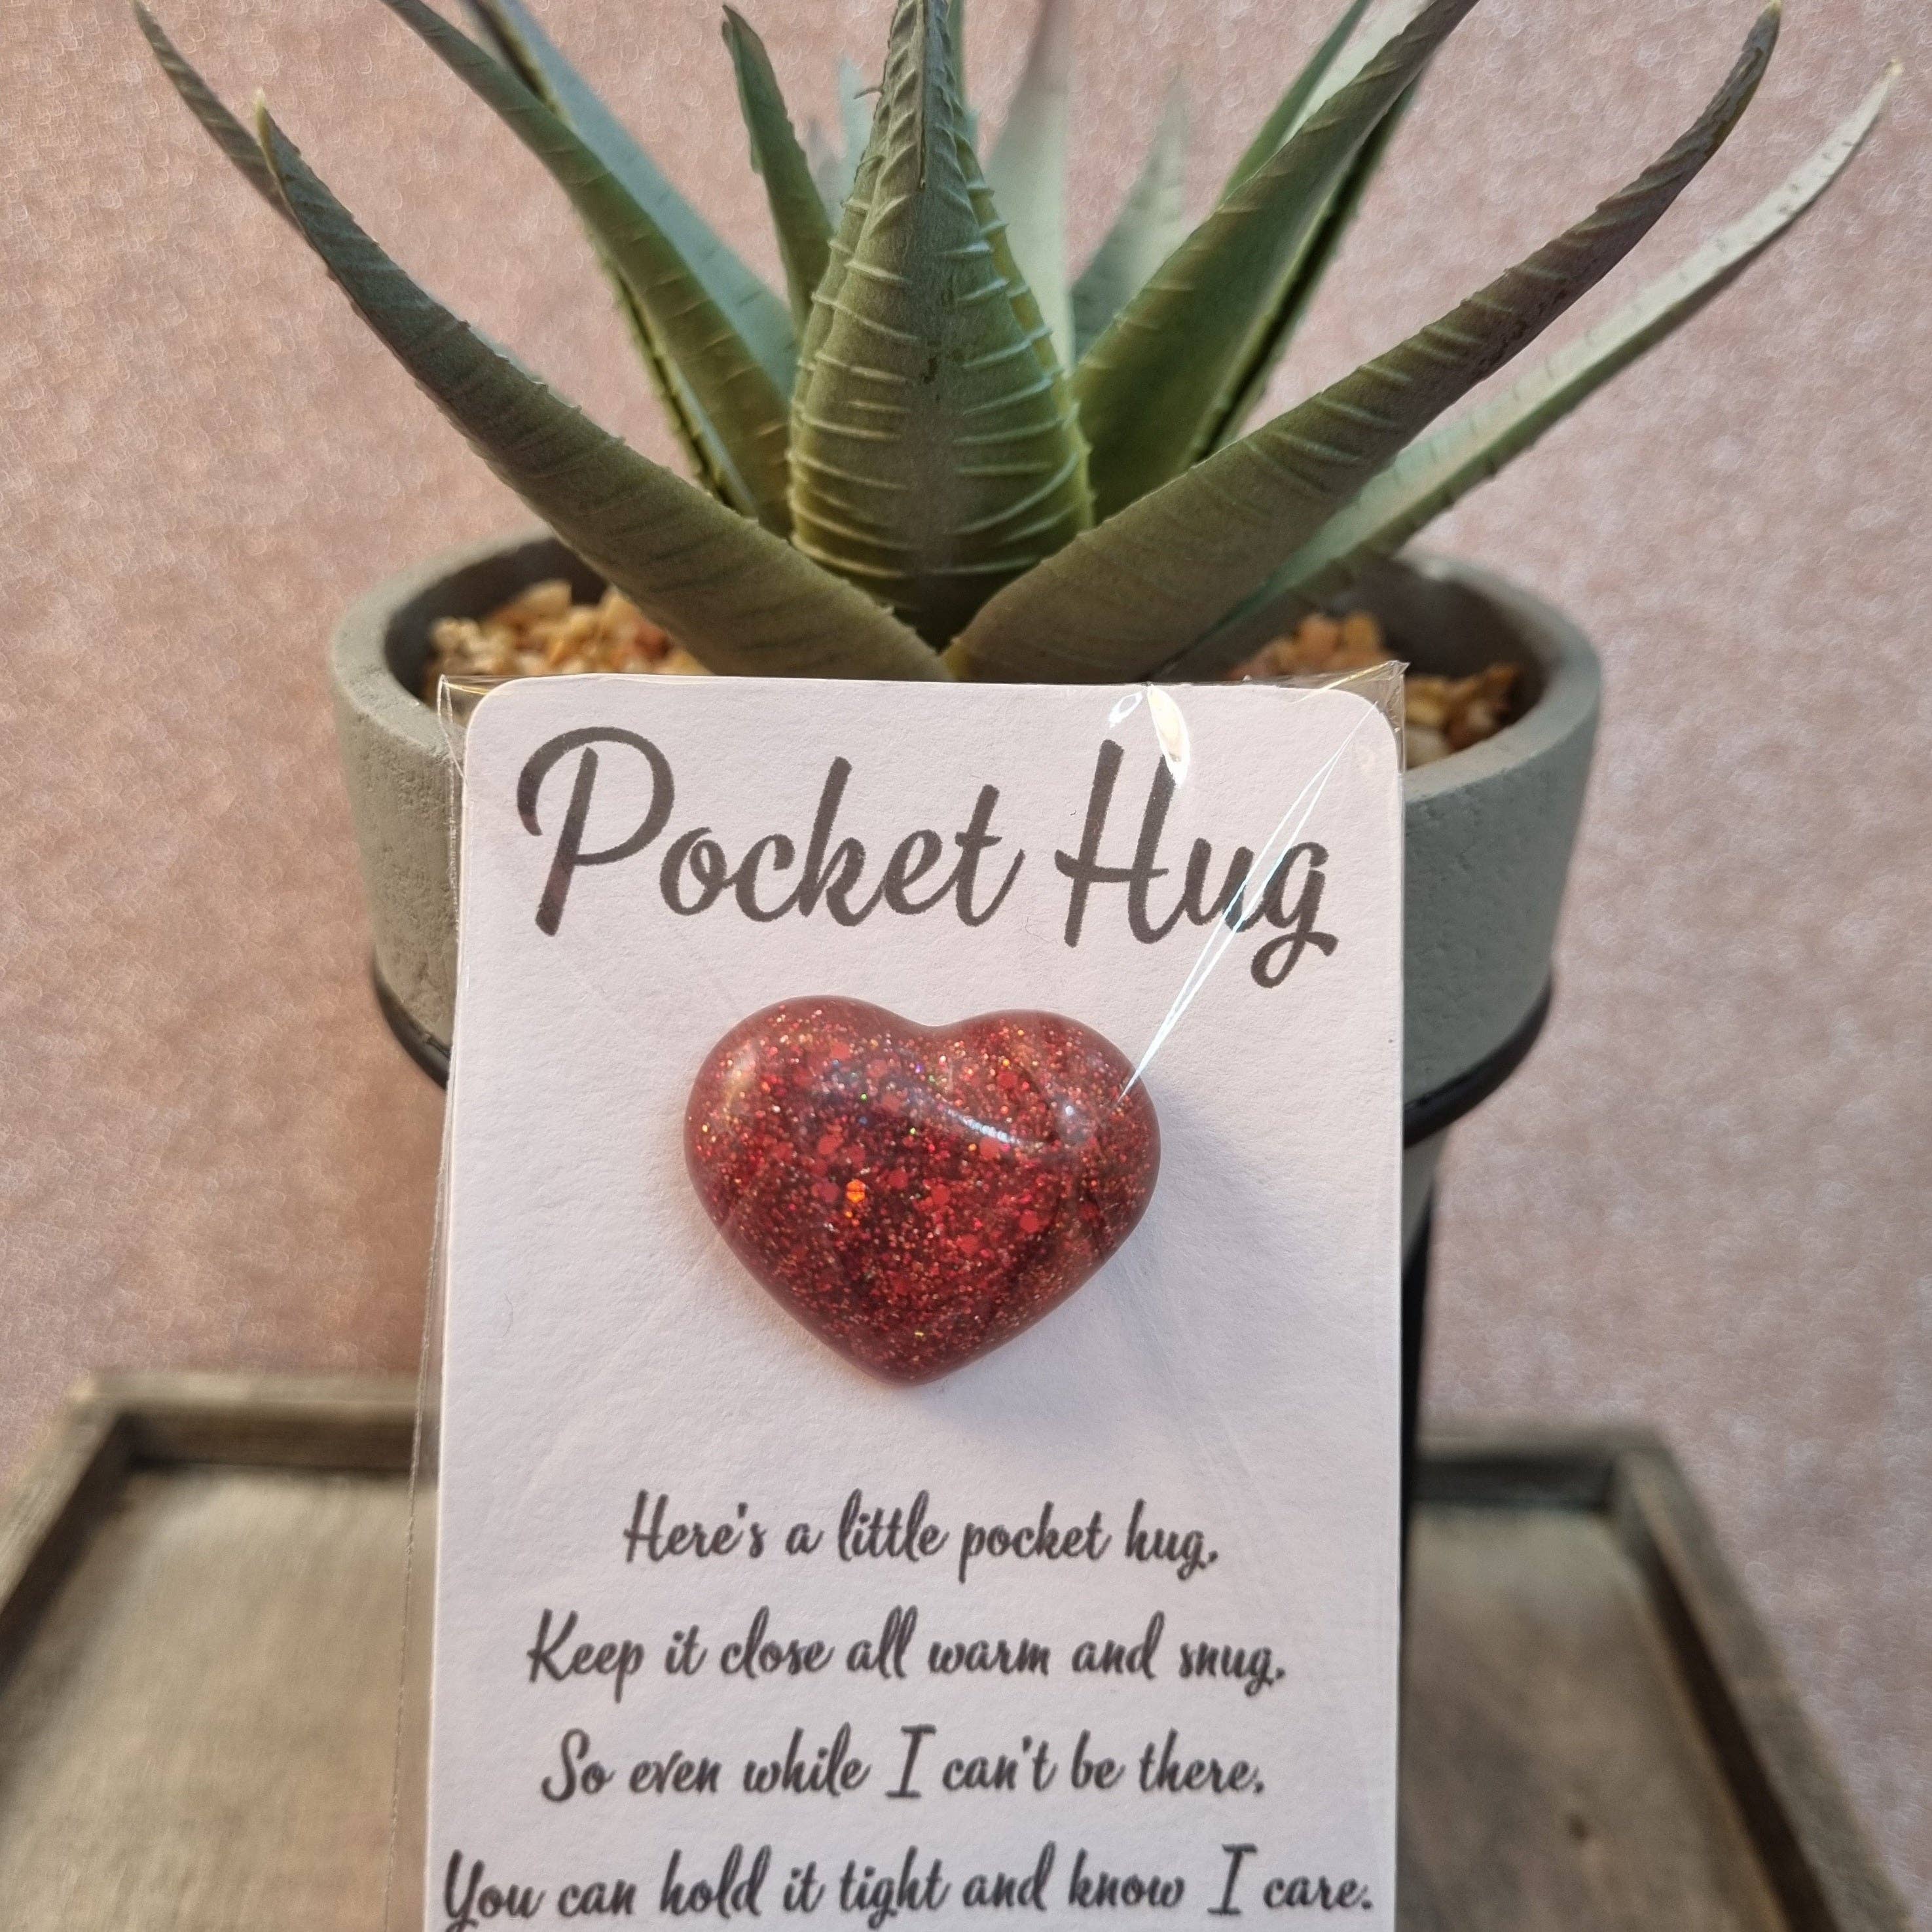 Pocket Hug
Here's a little pocket hug.
Keep it close all warm and snug.
So even while I can't be there.
You can hold it tight and know I care.